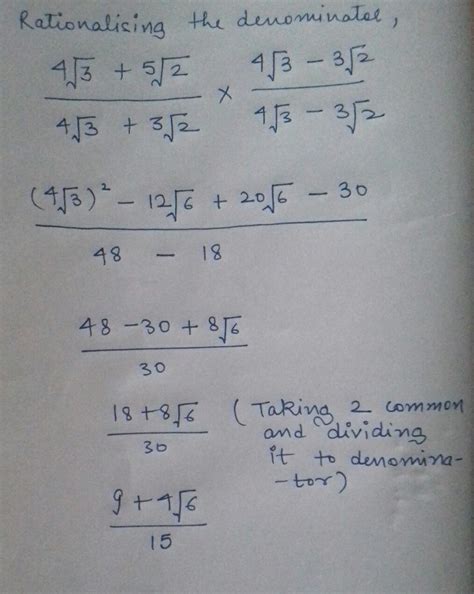 Rationalising the denominator,
4√3 + 5√2 / 4√3 + 3√2 × 4√3 − 3√2 / 4√3 − 3√2
(4√3)² − 12√6 + 20√6 − 30 / 48 − 18
48 − 30 + 8√6 / 30
18 + 8√6 / 30 (Taking 2 common
and dividing
it to denomina-
-tor)
9 + 4√6 / 15